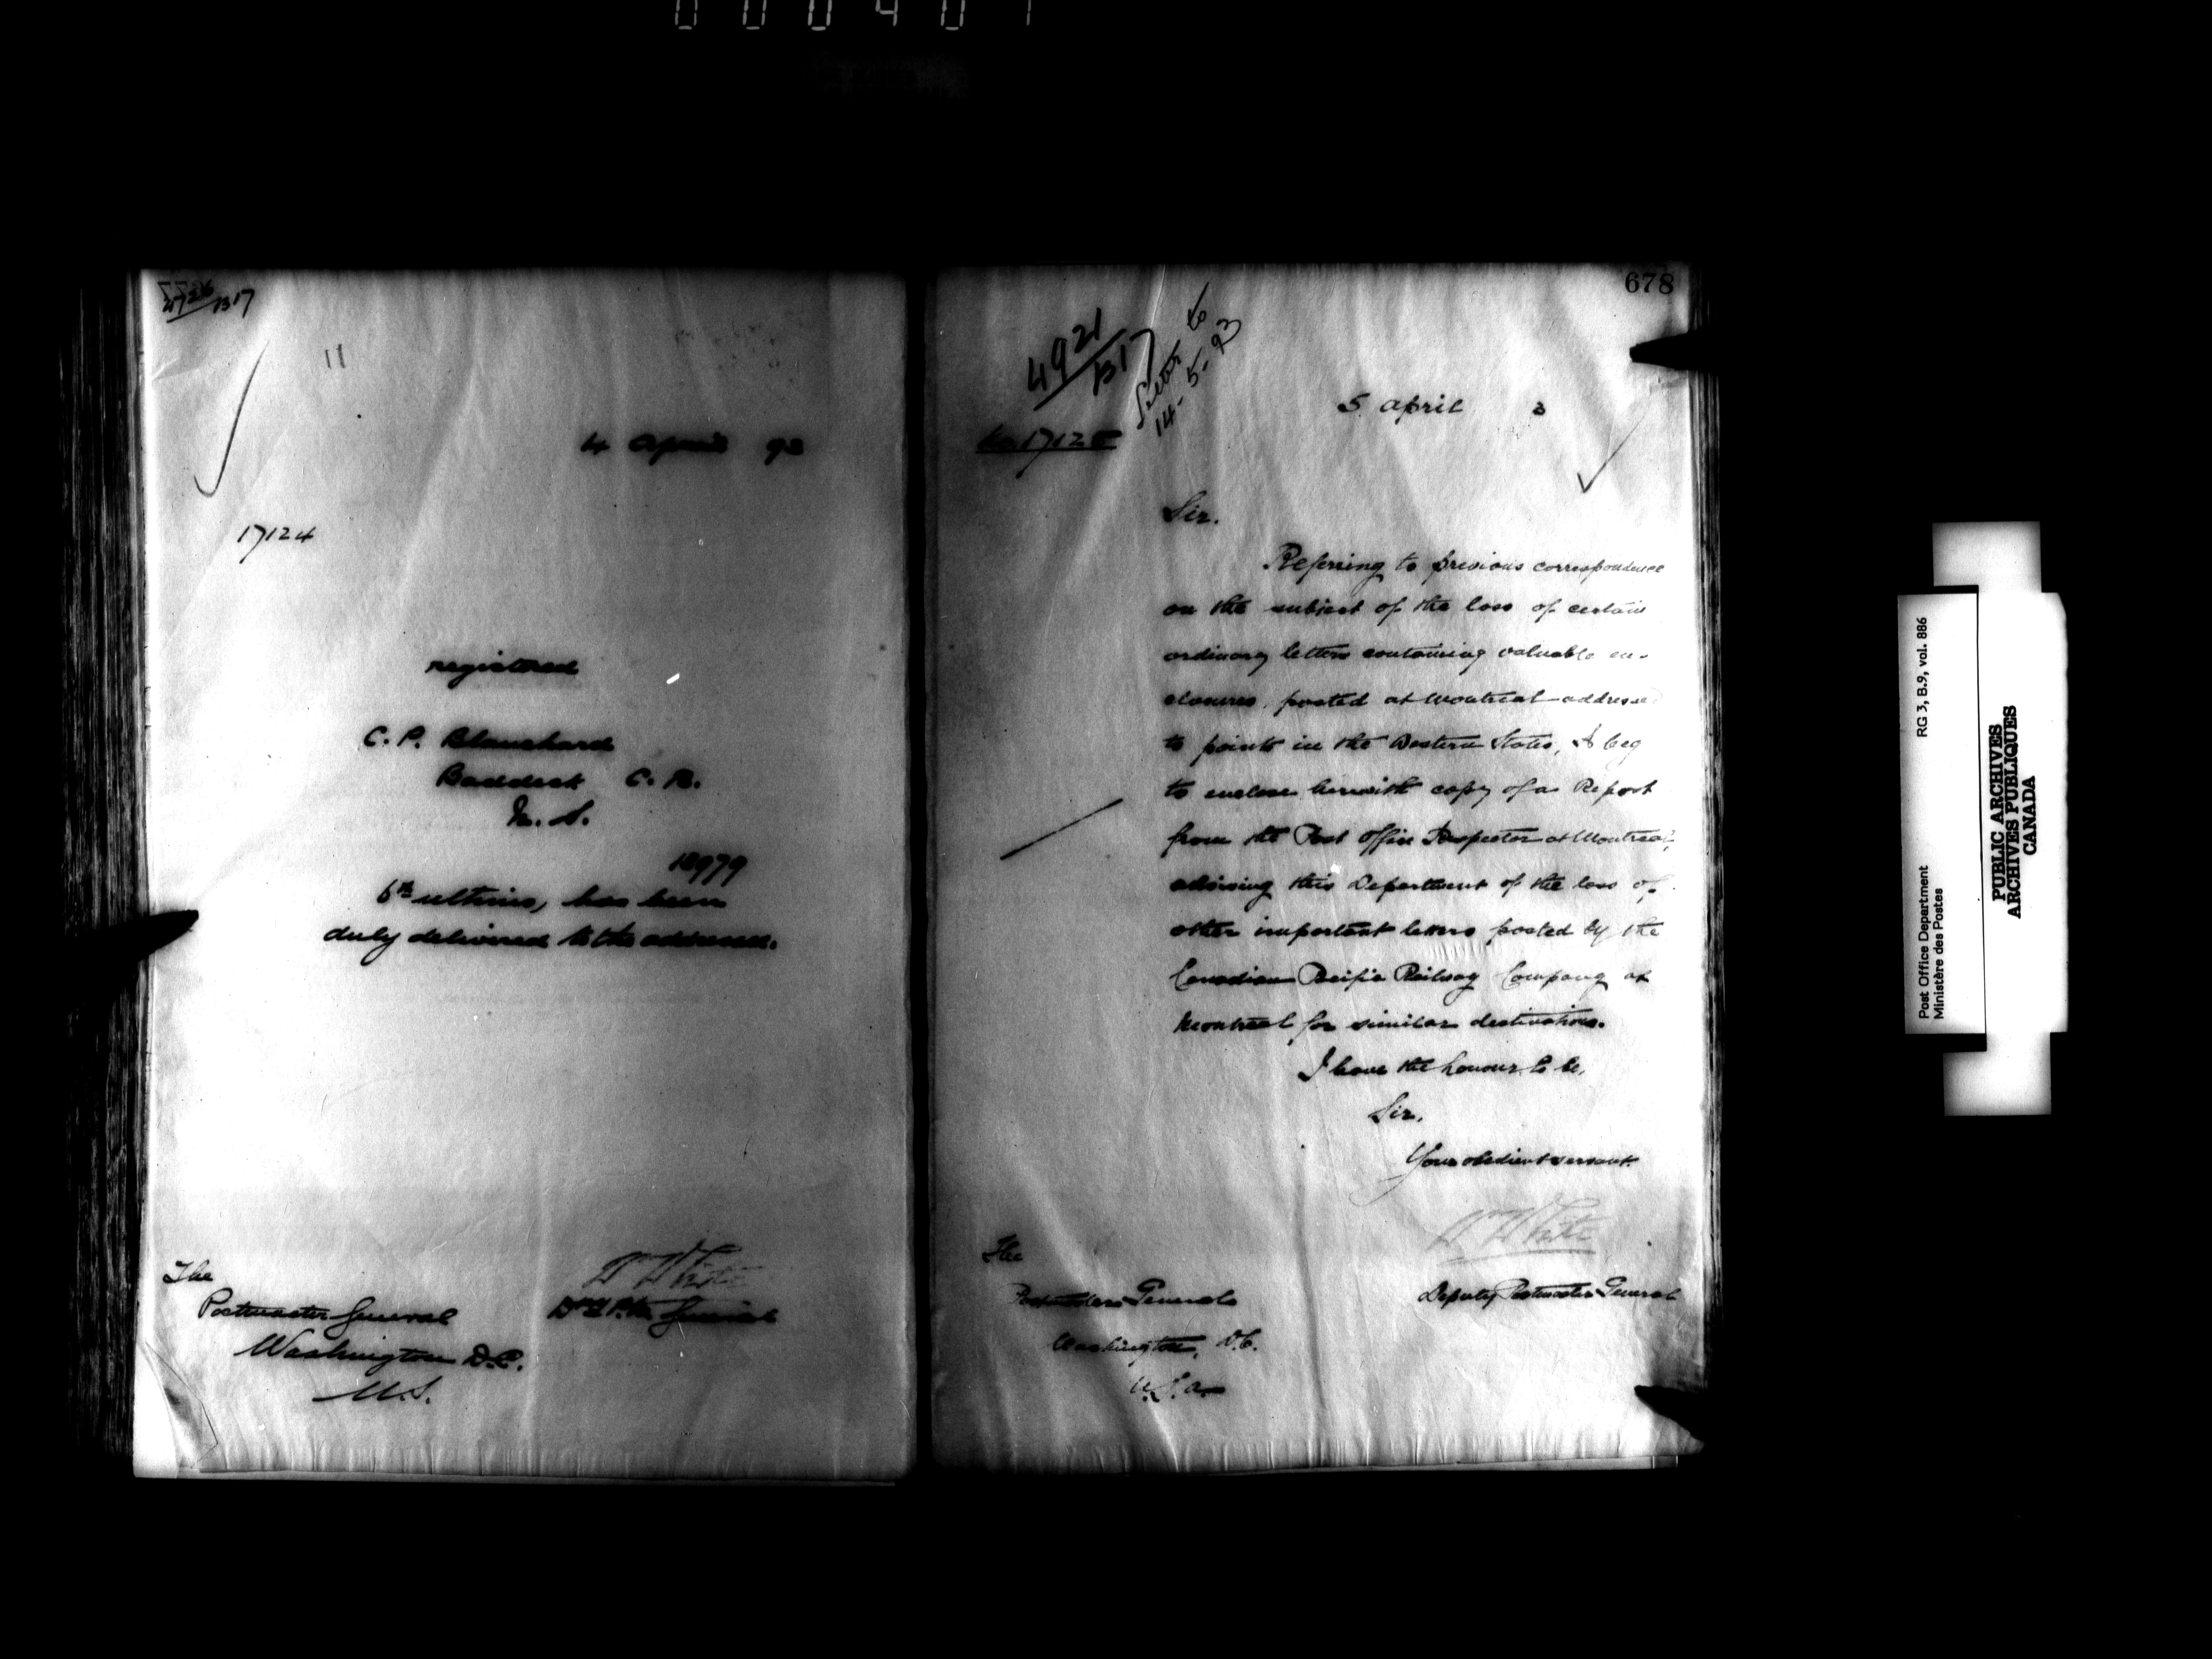 000401
4726/B17
11
4 April 93
17124
registered
C. P. Blanchard
Baddeck C. B.
N. S.
18979
6th ultimo, has been
duly delivered to the addressee.
The
Postmaster General
Washington D.C.
U.S.
W White
Dy P.M. General
678
4921/B17
Letter to
14-5-93
No. 17125
5 April 3
Sir.
Referring to previous correspondence
on the subject of the loss of certain
ordinary letters containing valuable en-
closures, posted at Montreal addressed
to points in the Western States, I beg
to enclose herewith copy of a Report
from the Post Office Inspector at Montreal,
advising this Department of the loss of
other important letters posted by the
Canadian Pacific Railway Company at
Montreal for similar destinations.
I have the honour to be,
Sir,
Your obedient servant.
W White
Deputy Postmaster General
The
Postmaster General
Washington, D.C.
U.S.A.
Post Office Department
Ministère des Postes
RG 3, B.9, vol. 886
PUBLIC ARCHIVES
ARCHIVES PUBLIQUES
CANADA